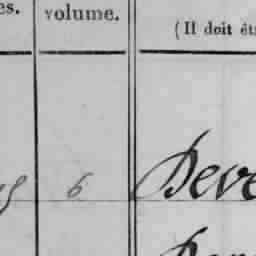 es.
volume.
(Il doit êt
6
Deve